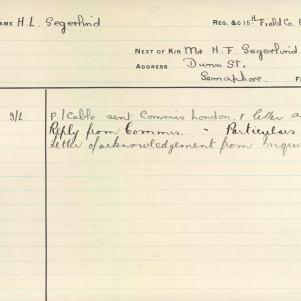 NAME H. L. Segerlind REG. &c 15th Field Co. E
NEXT OF KIN Mr H. F. Segerlind
ADDRESS Dunn St.
Semaphore.
P/Cable sent Commis London. & letter a
Reply from Commis. " Particulars
Letter of acknowledgement from